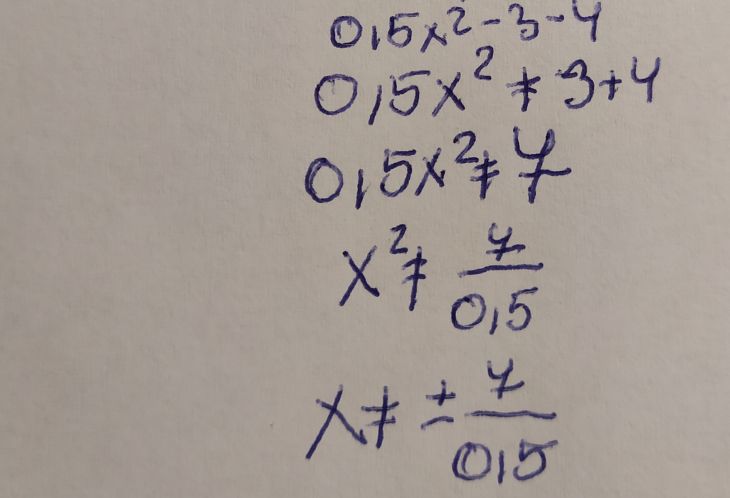 0,5x²-3-4
0,5x² ≠ 3+4
0,5x² ≠ 7
x² ≠ 7/0,5
x ≠ ± 7/0,5